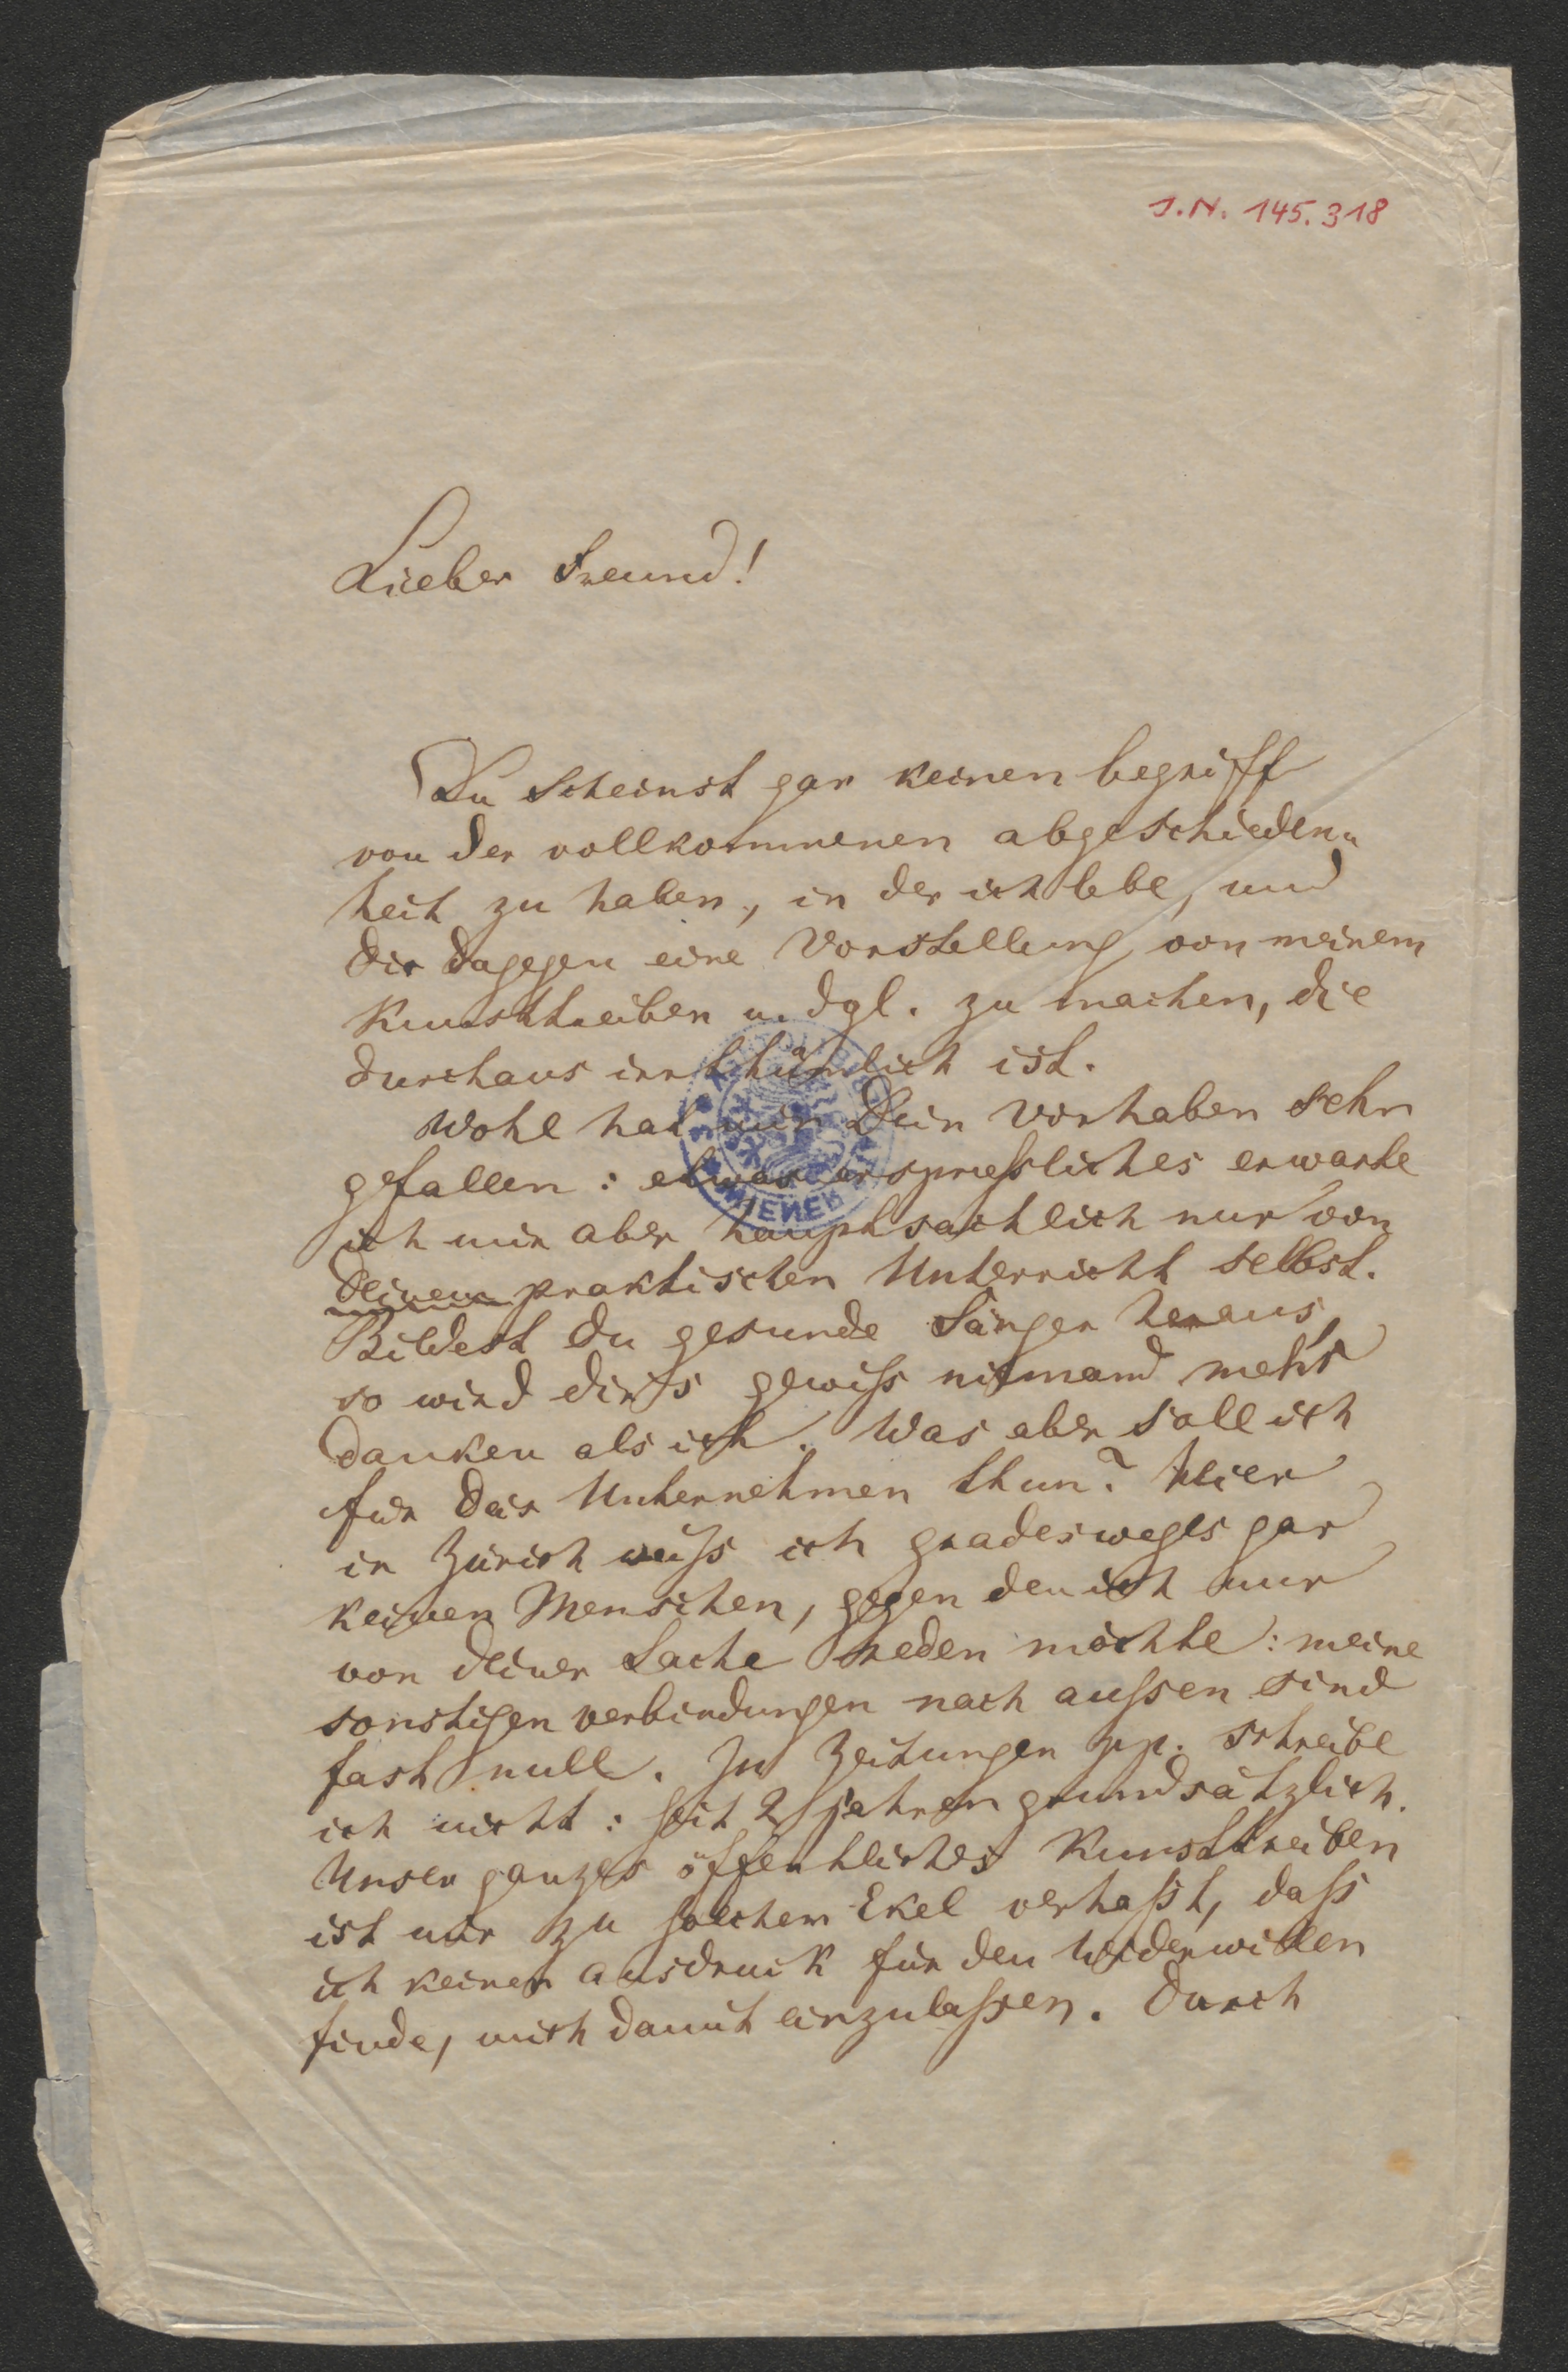 J.N. 145.318
Lieber Freund!
Du scheinst gar keinen begriff
von der vollkommenen abgeschieden-
heit zu haben, in der ich lebe, und
dir dagegen eine Vorstellung von meinem
Kunsttreiben u. dgl. zu machen, die
durchaus irrthümlich ist.
Wohl hat mir Dein vorhaben sehr
gefallen: etwas ersprießliches erwarte
ich mir aber hauptsächlich nur von
deinem praktischen Unterricht selbst.
Bildest du gesunde Sänger heraus,
so wird dir's gewiß niemand mehr
danken als ich. Was aber soll ich
für das Unternehmen thun? Hier
in Zürich weiß ich geradesweges gar
keinen Menschen, gegen den ich nur
von deiner Sache reden möchte: meine
sonstigen verbindungen nach außen sind
fast null. In Zeitungen pp. schreibe
ich nicht: seit 2 jahren grundsätzlich.
Unser ganzes öffentliches Kunsttreiben
ist mir zu solchem Ekel verhaßt, daß
ich keinen ausdruck für den Widerwillen
finde, mich damit einzulaßen. Durch
WIENER